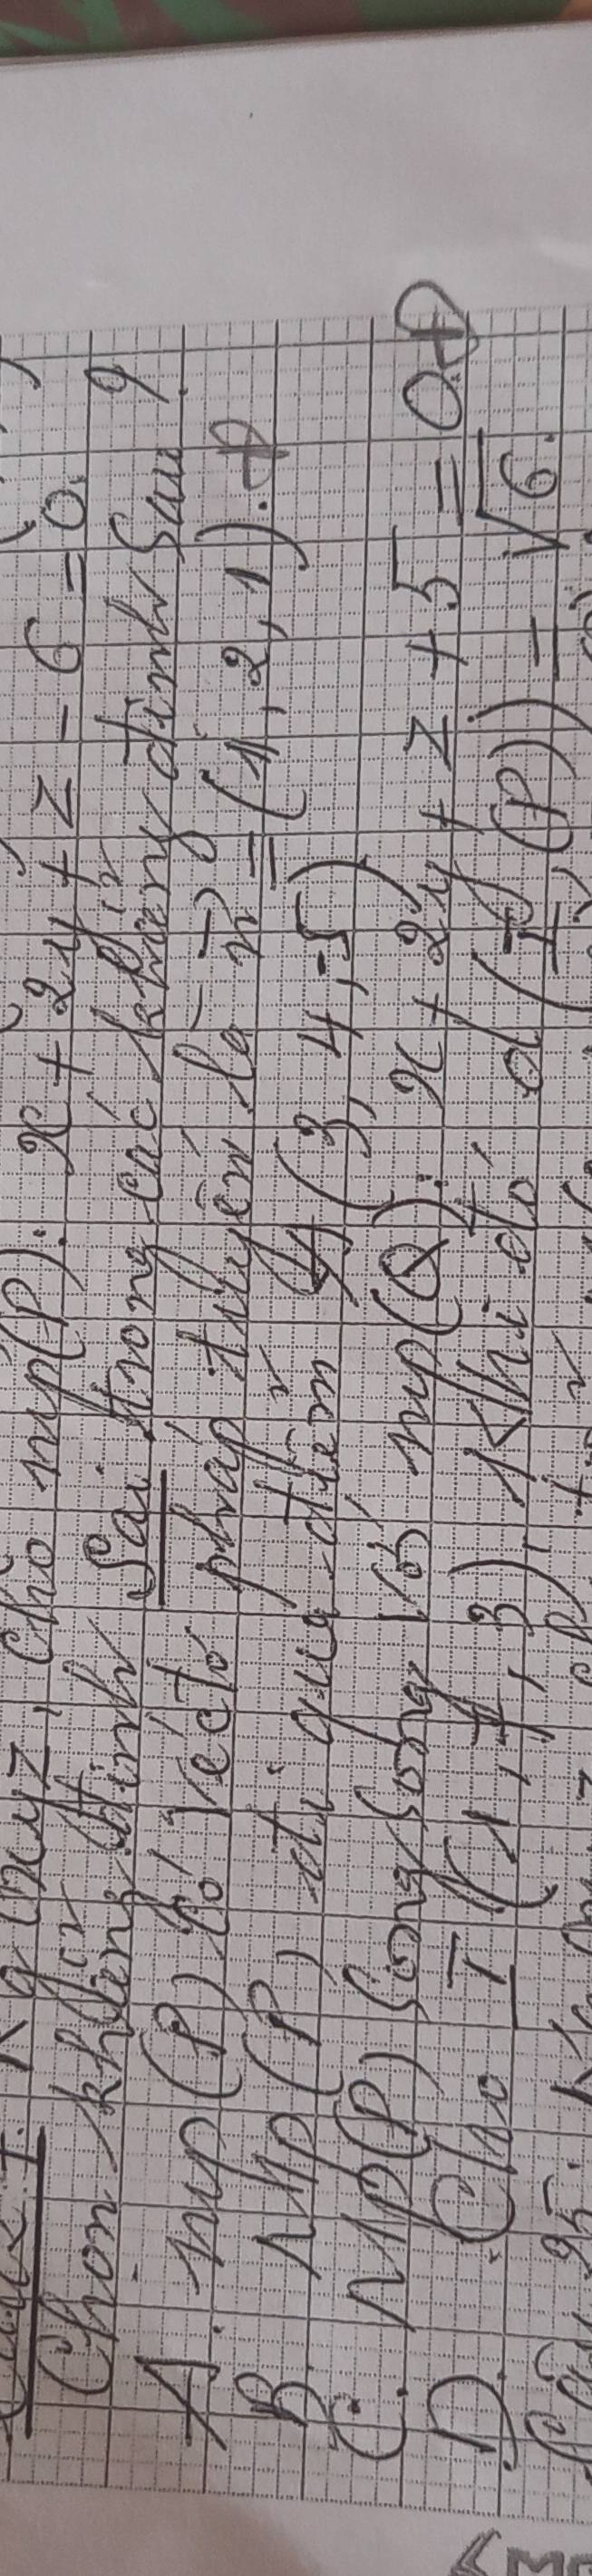 Kg Oxyz, cho mp(P): x + 2y + z - 6 = 0.
Chọn khẳng định Sai trong các khẳng định sau?
A. mp (P) có vectơ pháp tuyến là n = (1, 2, 1). Đ
B. Mp (P) đi qua điểm A (3, 4, -5)
C. Mp(P) song song với mp(Q): x + 2y + z + 5 = 0. Đ
D. Cho I (1, 7, 3). Khi đó d(I, (P)) = √6.